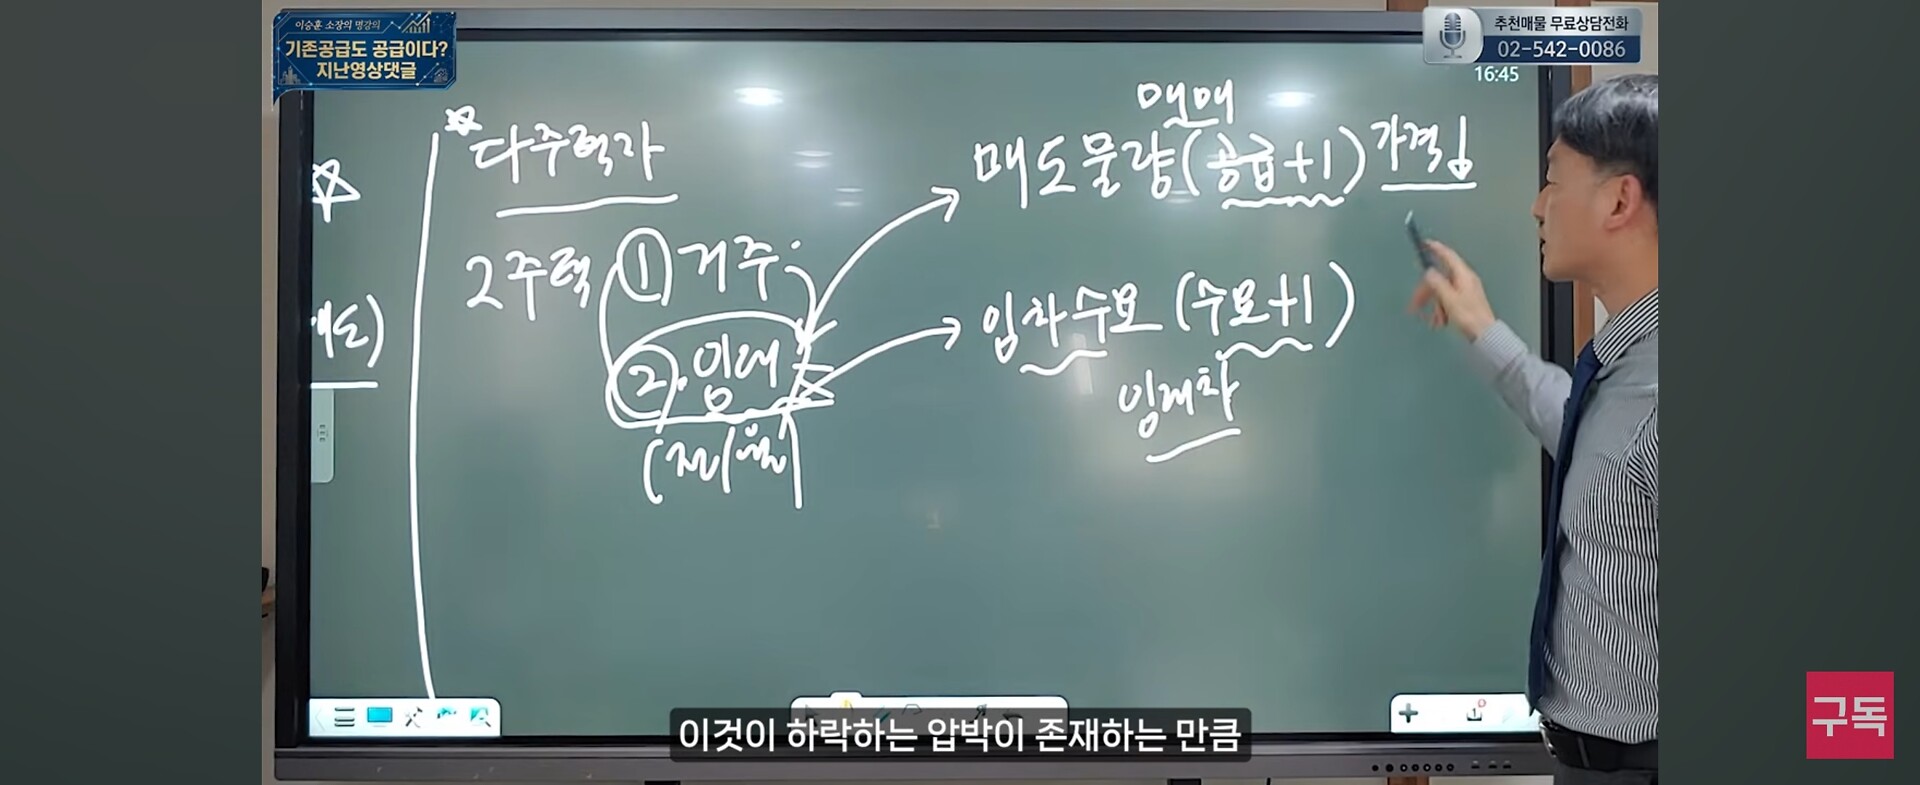 이승훈 소장의 명강의
기존공급도 공급이다?
지난영상댓글
추천매물 무료상담전화
02-542-0086
16:45
다주택자
2주택 ① 거주
②. 임대
(전/월)
매매
매도물량(공급+1) 가격↓
임차수요 (수요+1)
임대차
도)
이것이 하락하는 압박이 존재하는 만큼
구독